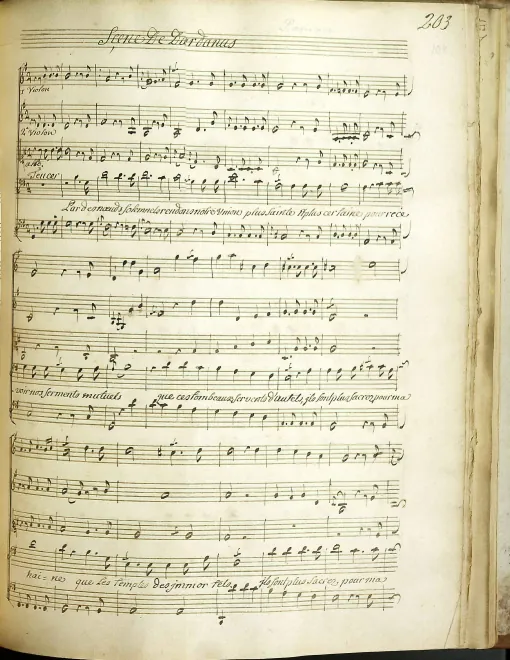 203
Scene De Dardanus
1 Violon
2 Violon
Teucer
Par des nœuds solemnels rendons notre Union plus sainte Et plus certaine pour rece
voir nos serments mutuels que ces tombeaux servent d'autels, ils sont plus sacrez pour ma
hai = ne que Les Temples des jmmor Tels, ils sont plus sacrez, pour ma